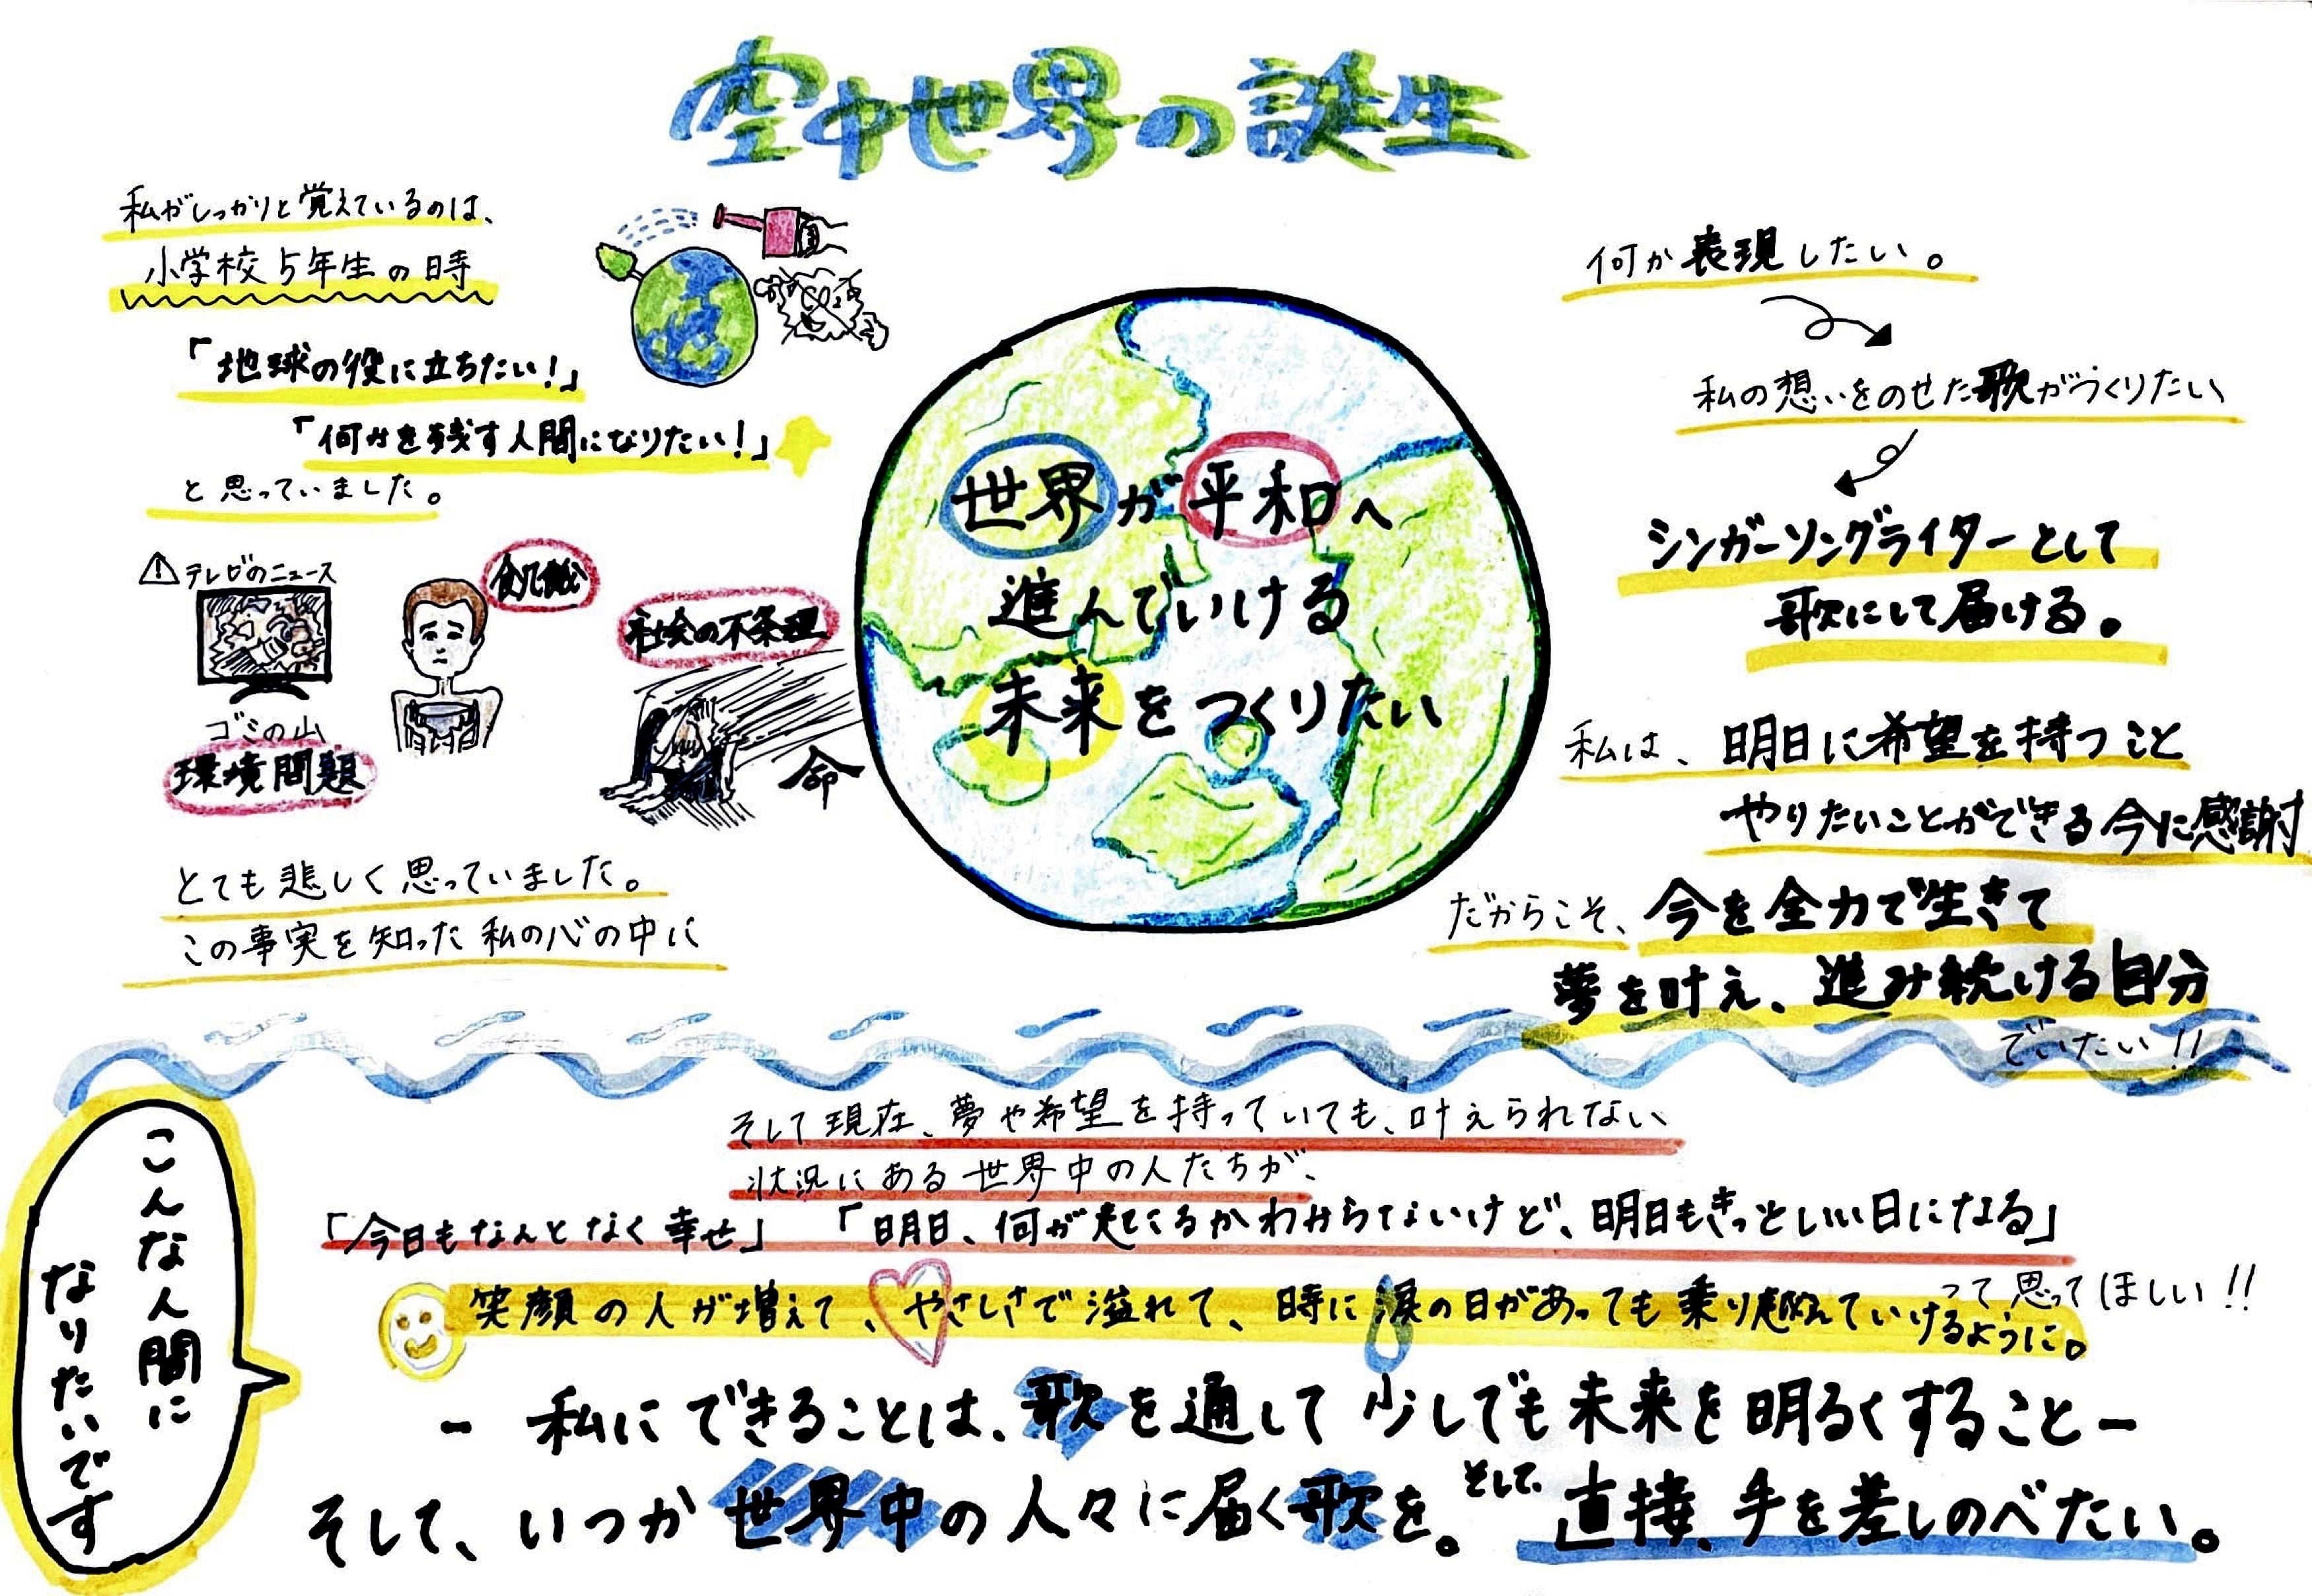 空中世界の誕生
私がしっかりと覚えているのは、
小学校5年生の時
「地球の役に立ちたい!」
「何かを残す人間になりたい!」
と思っていました。
⚠テレビのニュース
ゴミの山
環境問題
飢餓
社会の不条理
命
とても悲しく思っていました。
この事実を知った私の心の中に
世界が平和へ
進んでいける
未来をつくりたい
何か表現したい。
私の想いをのせた歌がつくりたい
シンガーソングライターとして
歌にして届ける。
私は、明日に希望を持つこと
やりたいことができる今に感謝
だからこそ、今を全力で生きて
夢を叶え、進み続ける自分
でいたい!!
こんな人間に
なりたいです
そして現在、夢や希望を持っていても、叶えられない
状況にある世界中の人たちが、
「今日もなんとなく幸せ」「明日、何が起こるかわからないけど、明日もきっといい日になる」
って思ってほしい!!
笑顔の人が増えて、やさしさで溢れて、時に涙の日があっても乗り越えていけるように。
- 私にできることは、歌を通して少しでも未来を明るくすること-
そして、いつか世界中の人々に届く歌を。そして、直接、手を差しのべたい。